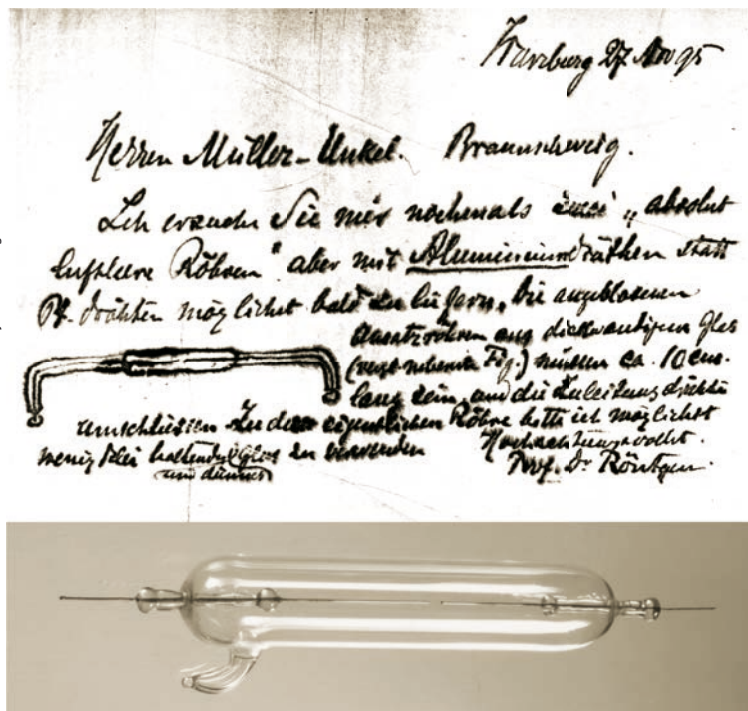 Würzburg 27 Nov 95
Herren Müller-Unkel. Braunschweig.
Ich ersuche Sie mir nochmals zwei „absolut
luftleere Röhren" aber mit Aluminiumdräthen statt
Pt. dräthen möglichst bald zu liefern. Die angeblasenen
Ansatzröhren aus dickwandigem Glas
(vergl. nebenst. Fig.) müssen ca. 10 cm.
lang sein, und die Zuleitungsdräthe
umschliessen. Zu der eigentlichen Röhre bitte ich möglichst
wenig Blei haltendes Glas zu verwenden
und dünnes
Hochachtungsvollst.
Prof. Dr Röntgen.